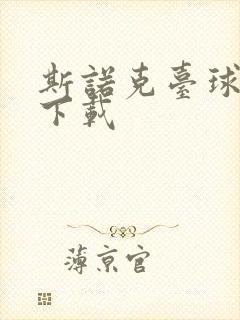 斯諾克臺球
下載
薄京官